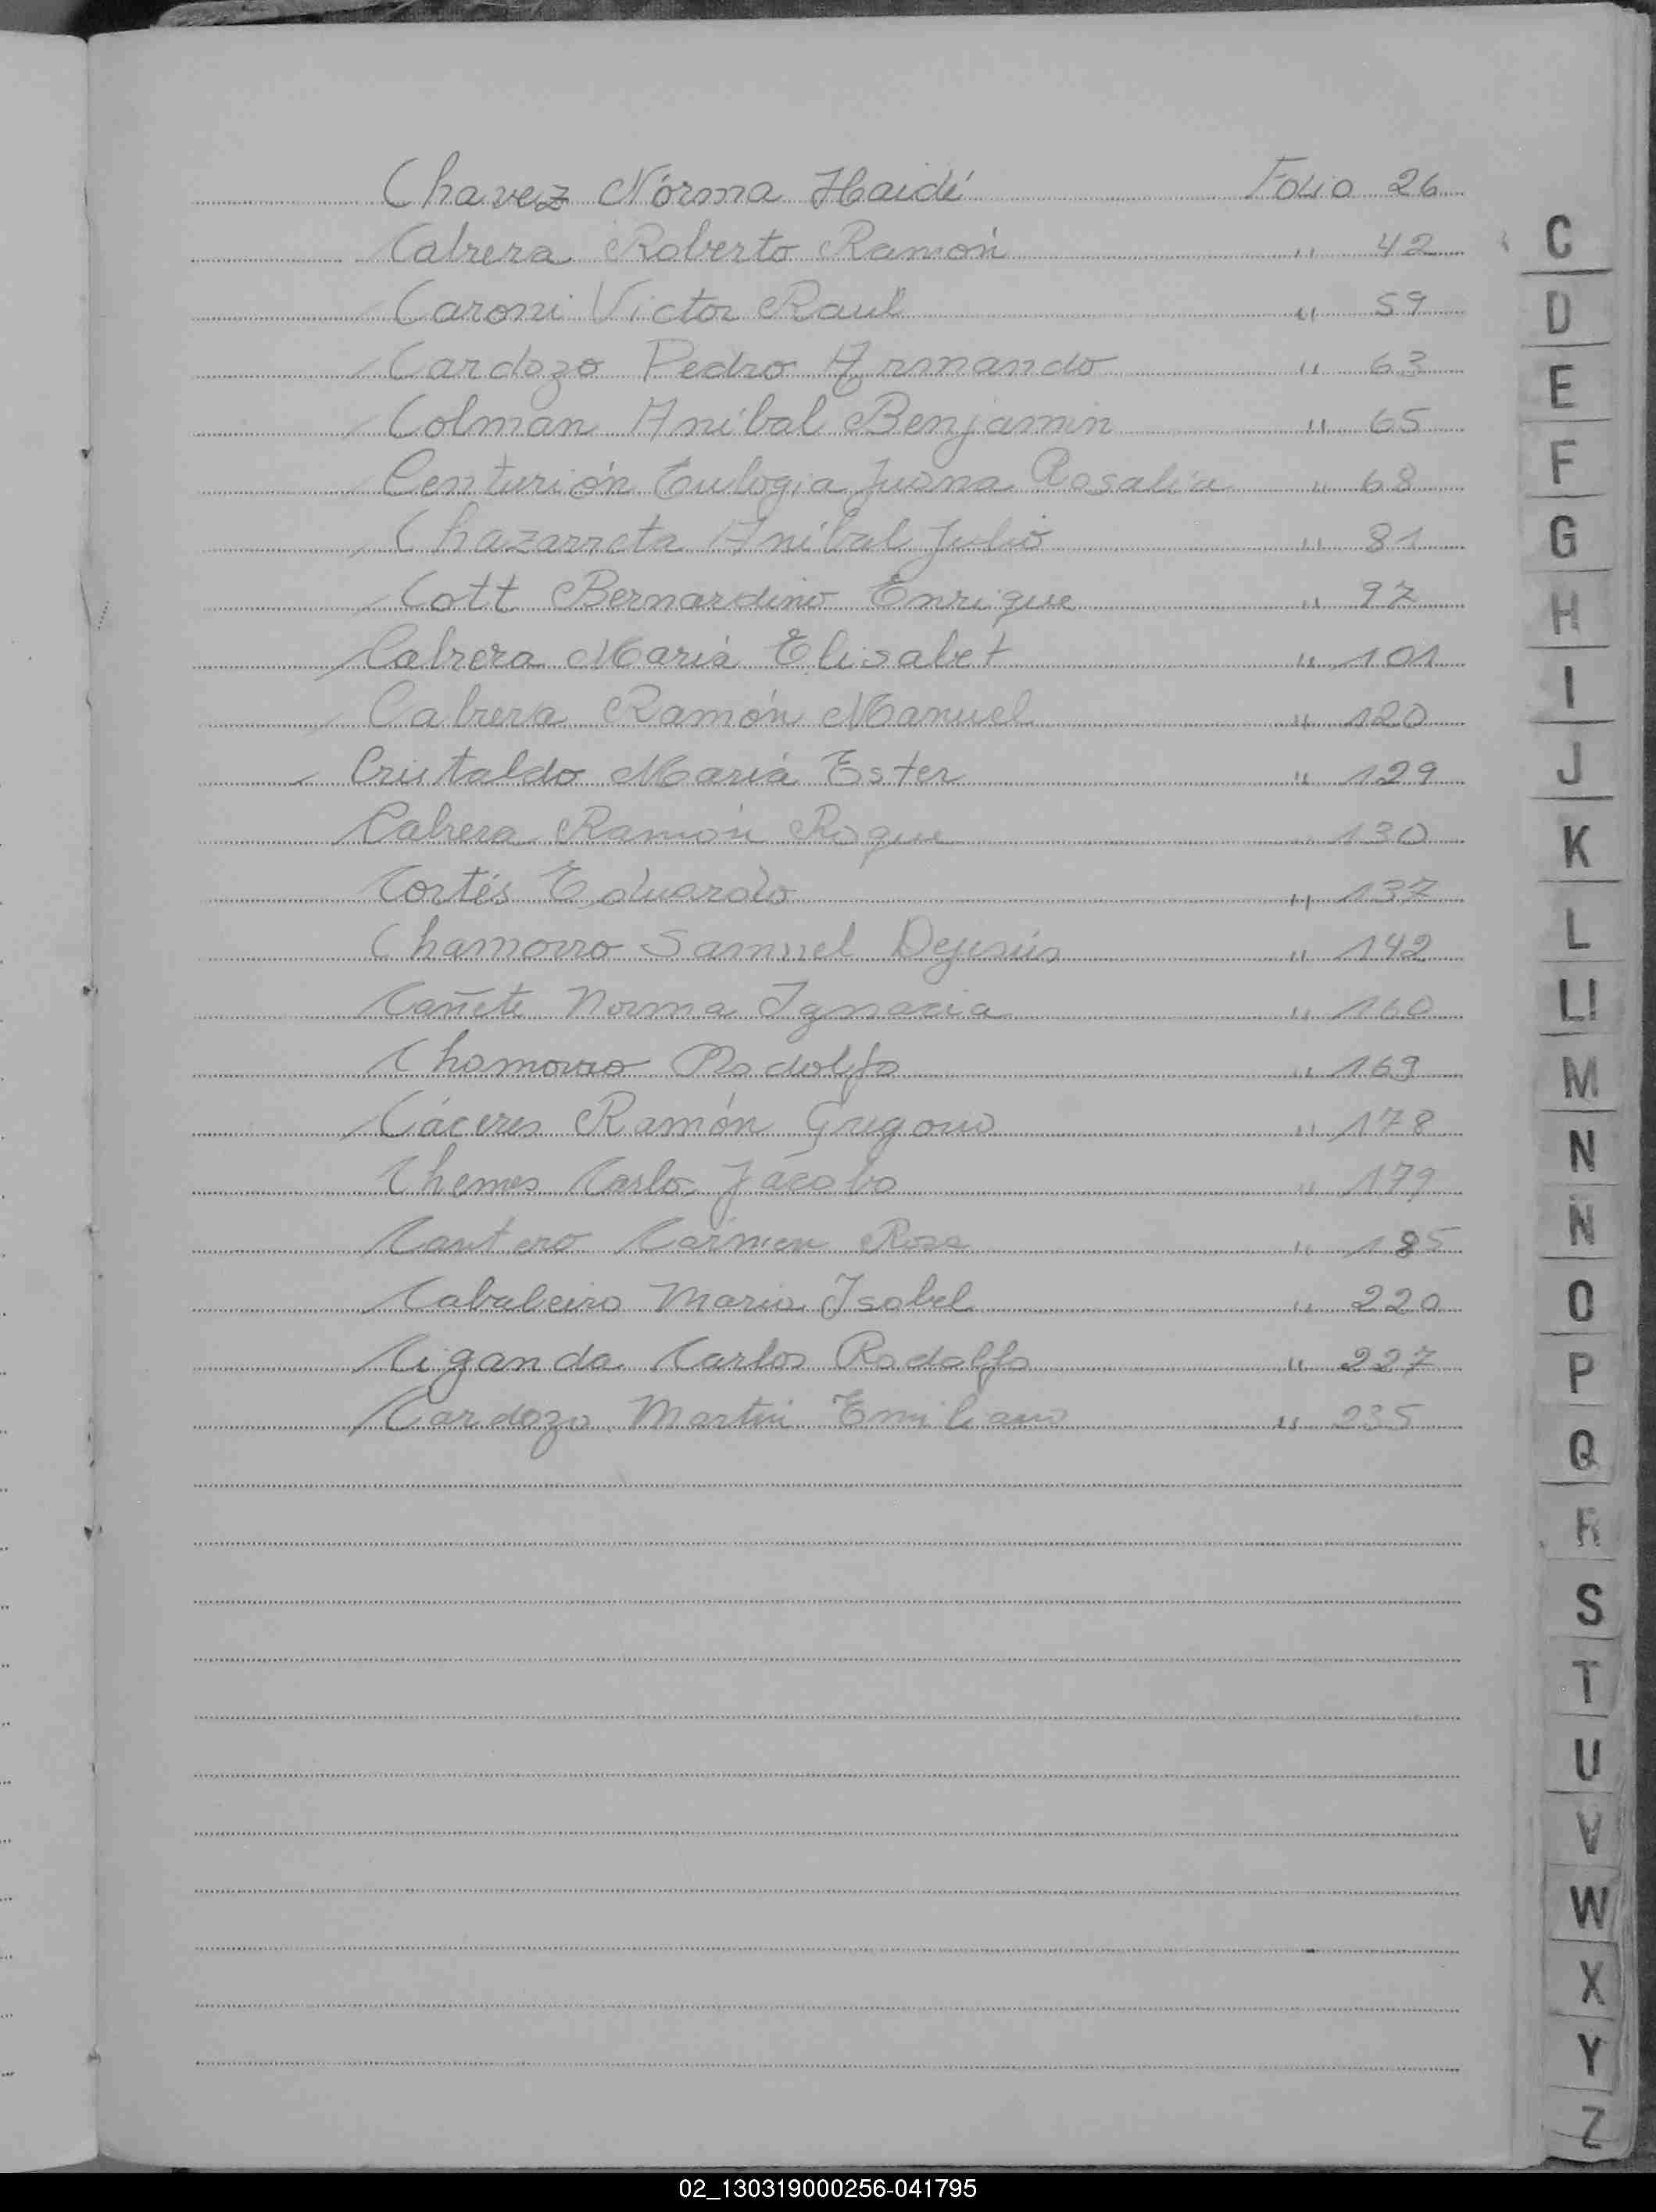 Chavez Nórma Haidé Folio 26
Cabrera Roberto Ramón " 42
Caroni Victor Raul " 59
Cardozo Pedro Armando " 63
Colman Aníbal Benjamin " 65
Centurión Eulogia Juana Rosalía " 68
Chazarreta Aníbal Julio " 81
Cott Bernardino Enrique " 97
Cabrera Mariá Elisabet " 101
Cabrera Ramón Manuel " 120
Cristaldo Mariá Ester " 129
Cabrera Ramón Roque " 130
Cortés Eduardo " 137
Chamorro Samuel Dejesús " 142
Cañete Norma Ignacia " 160
Chamorro Rodolfo " 169
Cáceres Ramón Gregorio " 178
Chemes Carlos Jacobo " 179
Cantero Carmen Rosa " 185
Cabaleiro Maria Isabel " 220
Ciganda Carlos Rodolfo " 227
Cardozo Martin Emiliano " 235
C
D
E
F
G
H
I
J
K
L
Ll
M
N
Ñ
O
P
Q
R
S
T
U
V
W
X
Y
Z
02_130319000256-041795